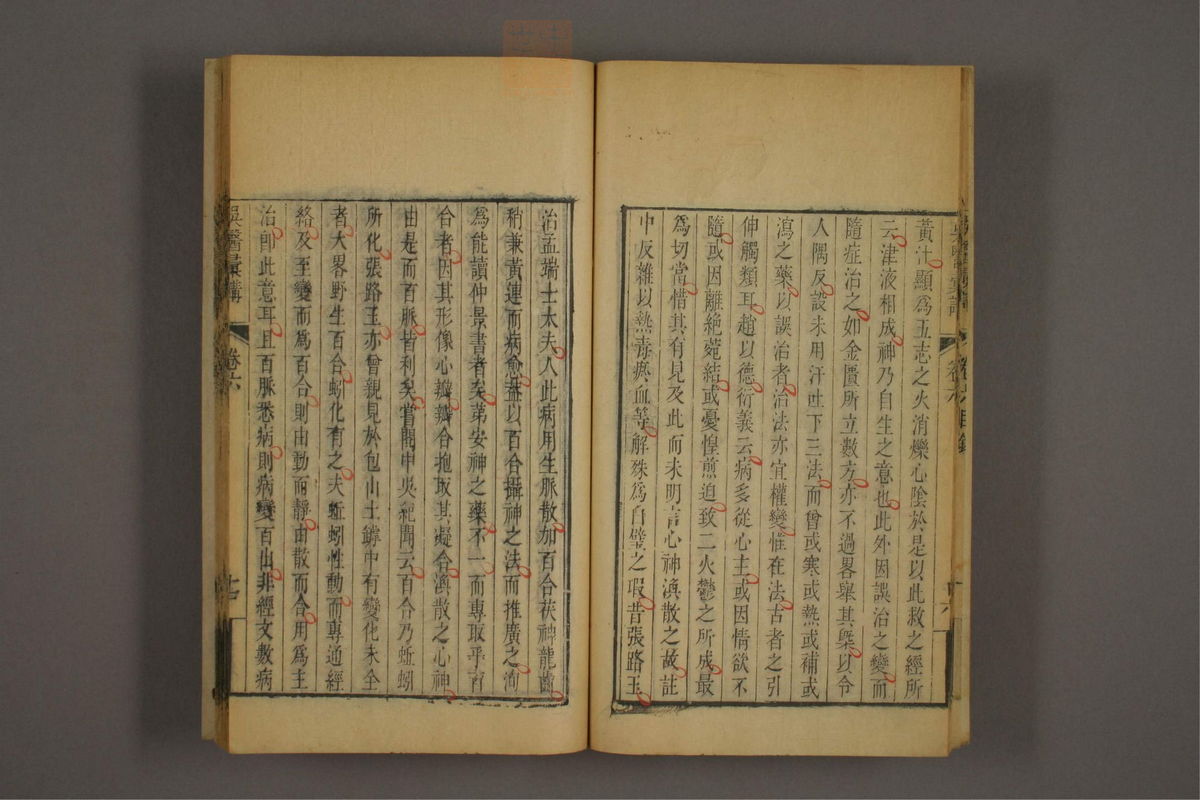 黃汁顯爲五志之火消爍心陰於是以此救之經所
云津液相成神乃自生之意也此外因誤治之變而
隨症治之如金匱所立數方亦不過畧舉其槩以令
人隅反設未用汗吐下三法而曾或寒或熱或補或
瀉之藥以誤治者治法亦宜權變惟在法古者之引
伸觸類耳趙以德衍義云病多從心主或因情欲不
隨或因離絶菀結或憂惶煎迫致二火鬱之所成最
爲切當惜其有見及此而未明言心神渙散之故註
中反雜以熱毒瘀血等解殊爲白璧之瑕昔張路玉
治孟端士太夫人此病用生脈散加百合茯神龍齒
稍兼黃連而病愈蓋以百合攝神之法而推廣之洵
爲能讀仲景書者矣苐安神之藥不一而專取乎百
合者因其形像心瓣瓣合抱取其凝合渙散之心神
由是而百脈皆利矣嘗閱中吳紀聞云百合乃蚯蚓
所化張路玉亦曾親見於包山土罅中有變化未全
者大畧野生百合蚓化有之夫蚯蚓性動而專通經
絡及至變而爲百合則由動而靜由散而合用爲主
治卽此意耳且百脈悉病則病變百出非經文數病
吳醫彙講
卷六
七